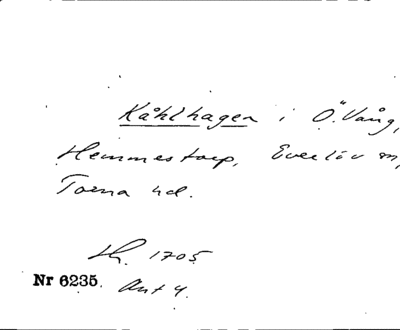 Kåhlhagen i Ö. Vång,
Hemmestorp, Everlöv sn,
Torna hd.
1705
Nr 6235. Akt 4.